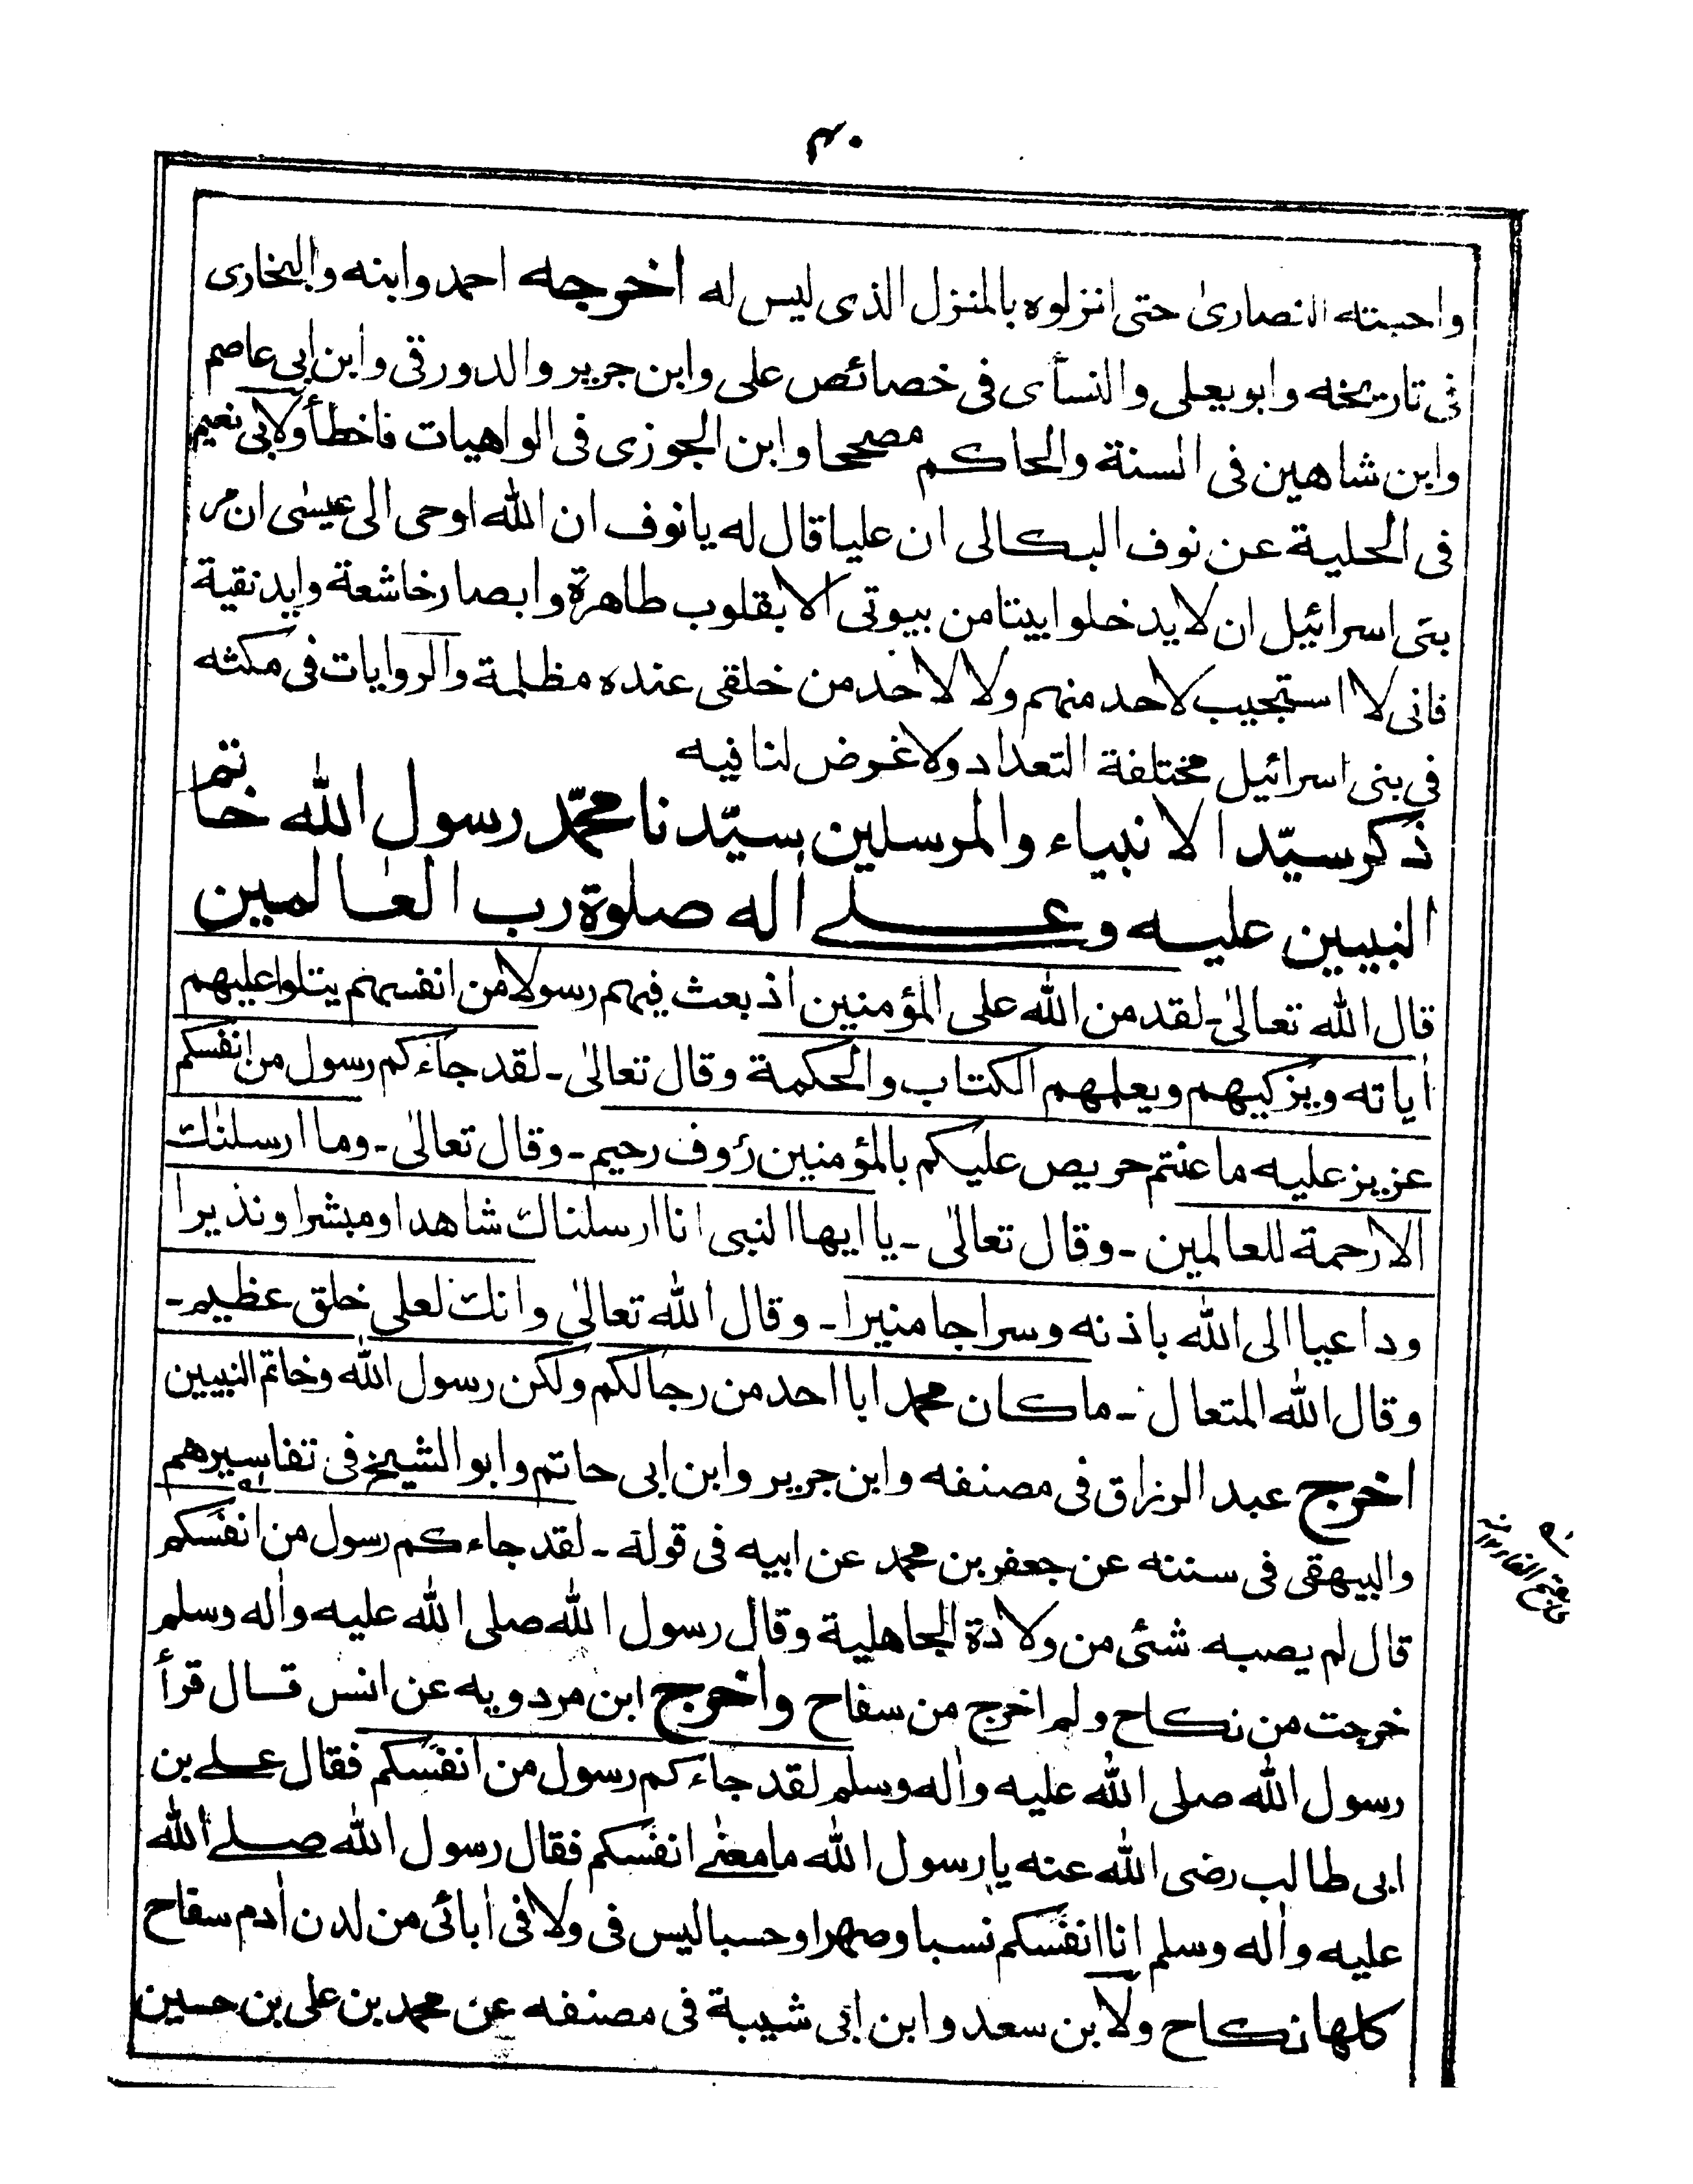 ٤٠
واحبته النصاریٰ حتی انزلوه بالمنزل الذی لیس له اخرجه احمد وابنه والبخاری
فی تاریخه وابویعلی والنسأی فی خصائص علی وابن جریر والدورقی وابن ابی عاصم
وابن شاهین فی السنة والحاکم مصححا وابن الجوزی فی الواهیات فاخطأ ولابی نعیم
فی الحلیة عن نوف البکالی ان علیا قال له یانوف ان الله اوحی الی عیسٰی ان مر
بنی اسرائیل ان لا یدخلوا بیتا من بیوتی الا بقلوب طاهرة وابصار خاشعة واید نقیة
فانی لا استجیب لاحد منهم ولا لاحد من خلقی عنده مظلمة والروایات فی مکثه
فی بنی اسرائیل مختلفة التعداد ولا غرض لنا فیه
ذکر سیّد الانبیاء والمرسلین سیّدنا محمّد رسول الله خاتم
النبیین علیه وعلے اٰله صلوة رب العالمین
قال الله تعالیٰ ـ لقد من الله علی المؤمنین اذ بعث فیهم رسولا من انفسهم یتلوا علیهم
اٰیاته ویزکیهم ویعلمهم الکتاب والحکمة وقال تعالیٰ ـ لقد جاءکم رسول من انفسکم
عزیز علیه ما عنتم حریص علیکم بالمؤمنین رؤف رحیم ـ وقال تعالیٰ ـ وما ارسلنٰك
الا رحمة للعالمین ـ وقال تعالیٰ ـ یا ایها النبی انا ارسلناك شاهدا ومبشرا ونذیرا
وداعیا الی الله باذنه وسراجا منیرا ـ وقال الله تعالیٰ وانك لعلی خلق عظیم ـ
وقال الله المتعال ـ ما کان محمد ابا احد من رجالکم ولکن رسول الله وخاتم النبیین
اخرج عبد الرزاق فی مصنفه وابن جریر وابن ابی حاتم وابو الشیخ فی تفاسیرهم
والبیهقی فی سننه عن جعفر بن محمد عن ابیه فی قولة ـ لقد جاءکم رسول من انفسکم
قال لم یصبه شئی من ولادة الجاهلیة وقال رسول الله صلی الله علیه واٰله وسلم
خرجت من نکاح ولم اخرج من سفاح واخرج ابن مردویه عن انس قال قرأ
رسول الله صلی الله علیه واٰله وسلم لقد جاءکم رسول من انفَسکم فقال علے بن
ابی طالب رضی الله عنه یا رسول الله ما معنٰے انفَسکم فقال رسول الله صلے الله
علیه واٰله وسلم انا انفَسکم نسبا وصهرا وحسبا لیس فی ولا فی اٰبائی من لدن اٰدم سفاح
کلها نکاح ولابن سعد وابن ابی شیبة فی مصنفه عن محمد بن علی بن حسین
بفتح الفاء